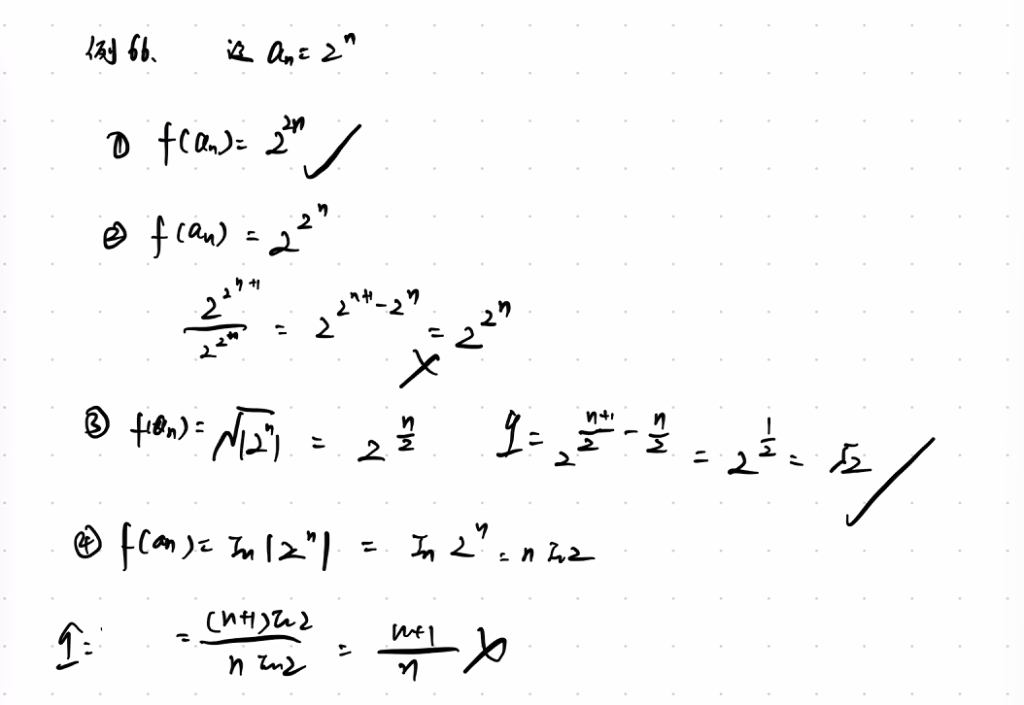 例66. 设 aₙ = 2^n
① f(aₙ) = 2^{2n} ✓
② f(aₙ) = 2^{2^n}
\frac{2^{2^{n+1}}}{2^{2^n}} = 2^{2^{n+1}-2^n} = 2^{2^n} ×
③ f(aₙ) = √|2^n| = 2^{\frac{n}{2}} q = 2^{\frac{n+1}{2} - \frac{n}{2}} = 2^{\frac{1}{2}} = √2 ✓
④ f(aₙ) = In |2^n| = In 2^n = n In 2
q = = \frac{(n+1) In 2}{n In 2} = \frac{n+1}{n} ×